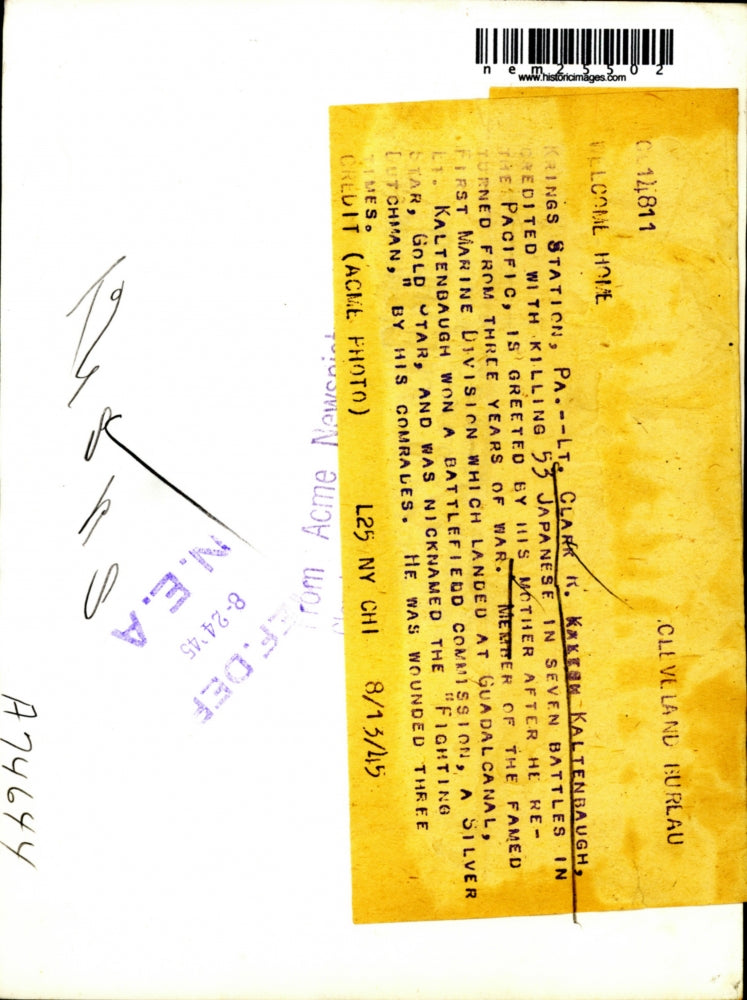 nem25502
www.historicimages.com
14811 CLEVELAND BUREAU
WELCOME HOME
KRINGS STATION, PA.--LT. CLARK K. KALTENBAUGH,
CREDITED WITH KILLING 53 JAPANESE IN SEVEN BATTLES IN
THE PACIFIC, IS GREETED BY HIS MOTHER AFTER HE RE-
TURNED FROM THREE YEARS OF WAR. MEMBER OF THE FAMED
FIRST MARINE DIVISION WHICH LANDED AT GUADALCANAL,
LT. KALTENBAUGH WON A BATTLEFIELD COMMISSION, A SILVER
STAR, GOLD STAR, AND WAS NICKNAMED THE "FIGHTING
DUTCHMAN," BY HIS COMRADES. HE WAS WOUNDED THREE
TIMES.
CREDIT (ACME PHOTO) L25 NY CHI 8/13/45
From Acme
EF. DEP
8-24-45
N.E.A
A74644